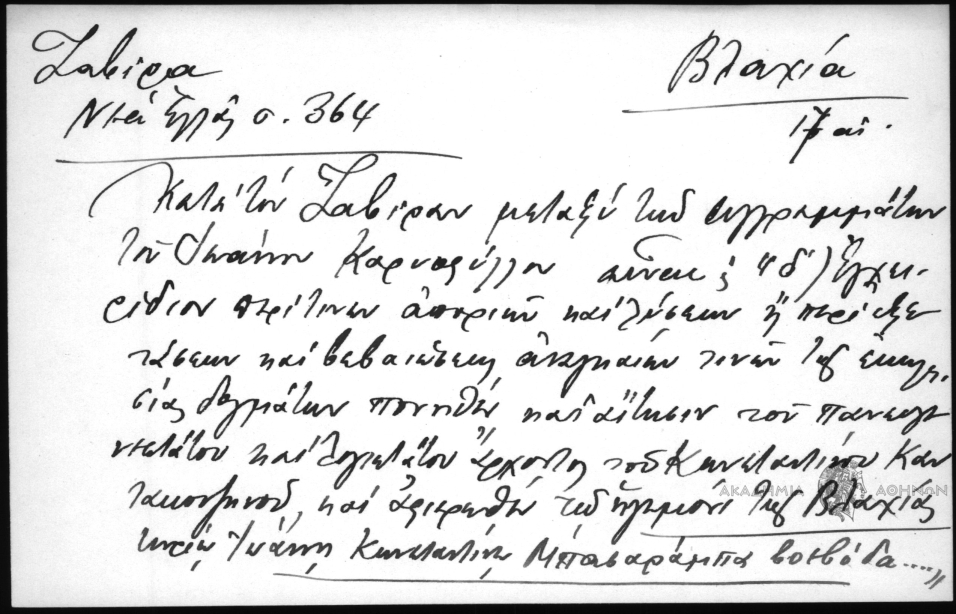 Ζαβίρα
Νέα Ἑλλάς σ. 364
Βλαχία
17 αἰ.
Κατὰ τὸν Ζαβίραν μεταξὺ τῶν συγγραμμάτων
τοῦ Ἰωάννου Καρυοφύλλου εἶναι "δ) Ἐγχει-
ρίδιον περί τινων ἀποριῶν καὶ λύσεων ἢ περὶ ἐξε
τάσεως καὶ βεβαιώσεως ἀναγκαίων τινῶν τῆς ἐκκλη-
σίας δογμάτων πονηθὲν κατ' αἴτησιν τοῦ πανευγε
νεστάτου καὶ λογιωτάτου ἄρχοντος τοῦ Κωνσταντίνου Καν
τακουζηνοῦ, καὶ ἀφιερωθὲν τῷ ἡγεμόνι τῆς Βλαχίας
κυρίῳ Ἰωάννῃ Κωνσταντίνῳ Μπασαράμπα βοεβόδα....."
ΑΚΑΔΗΜΙΑ ΑΘΗΝΩΝ